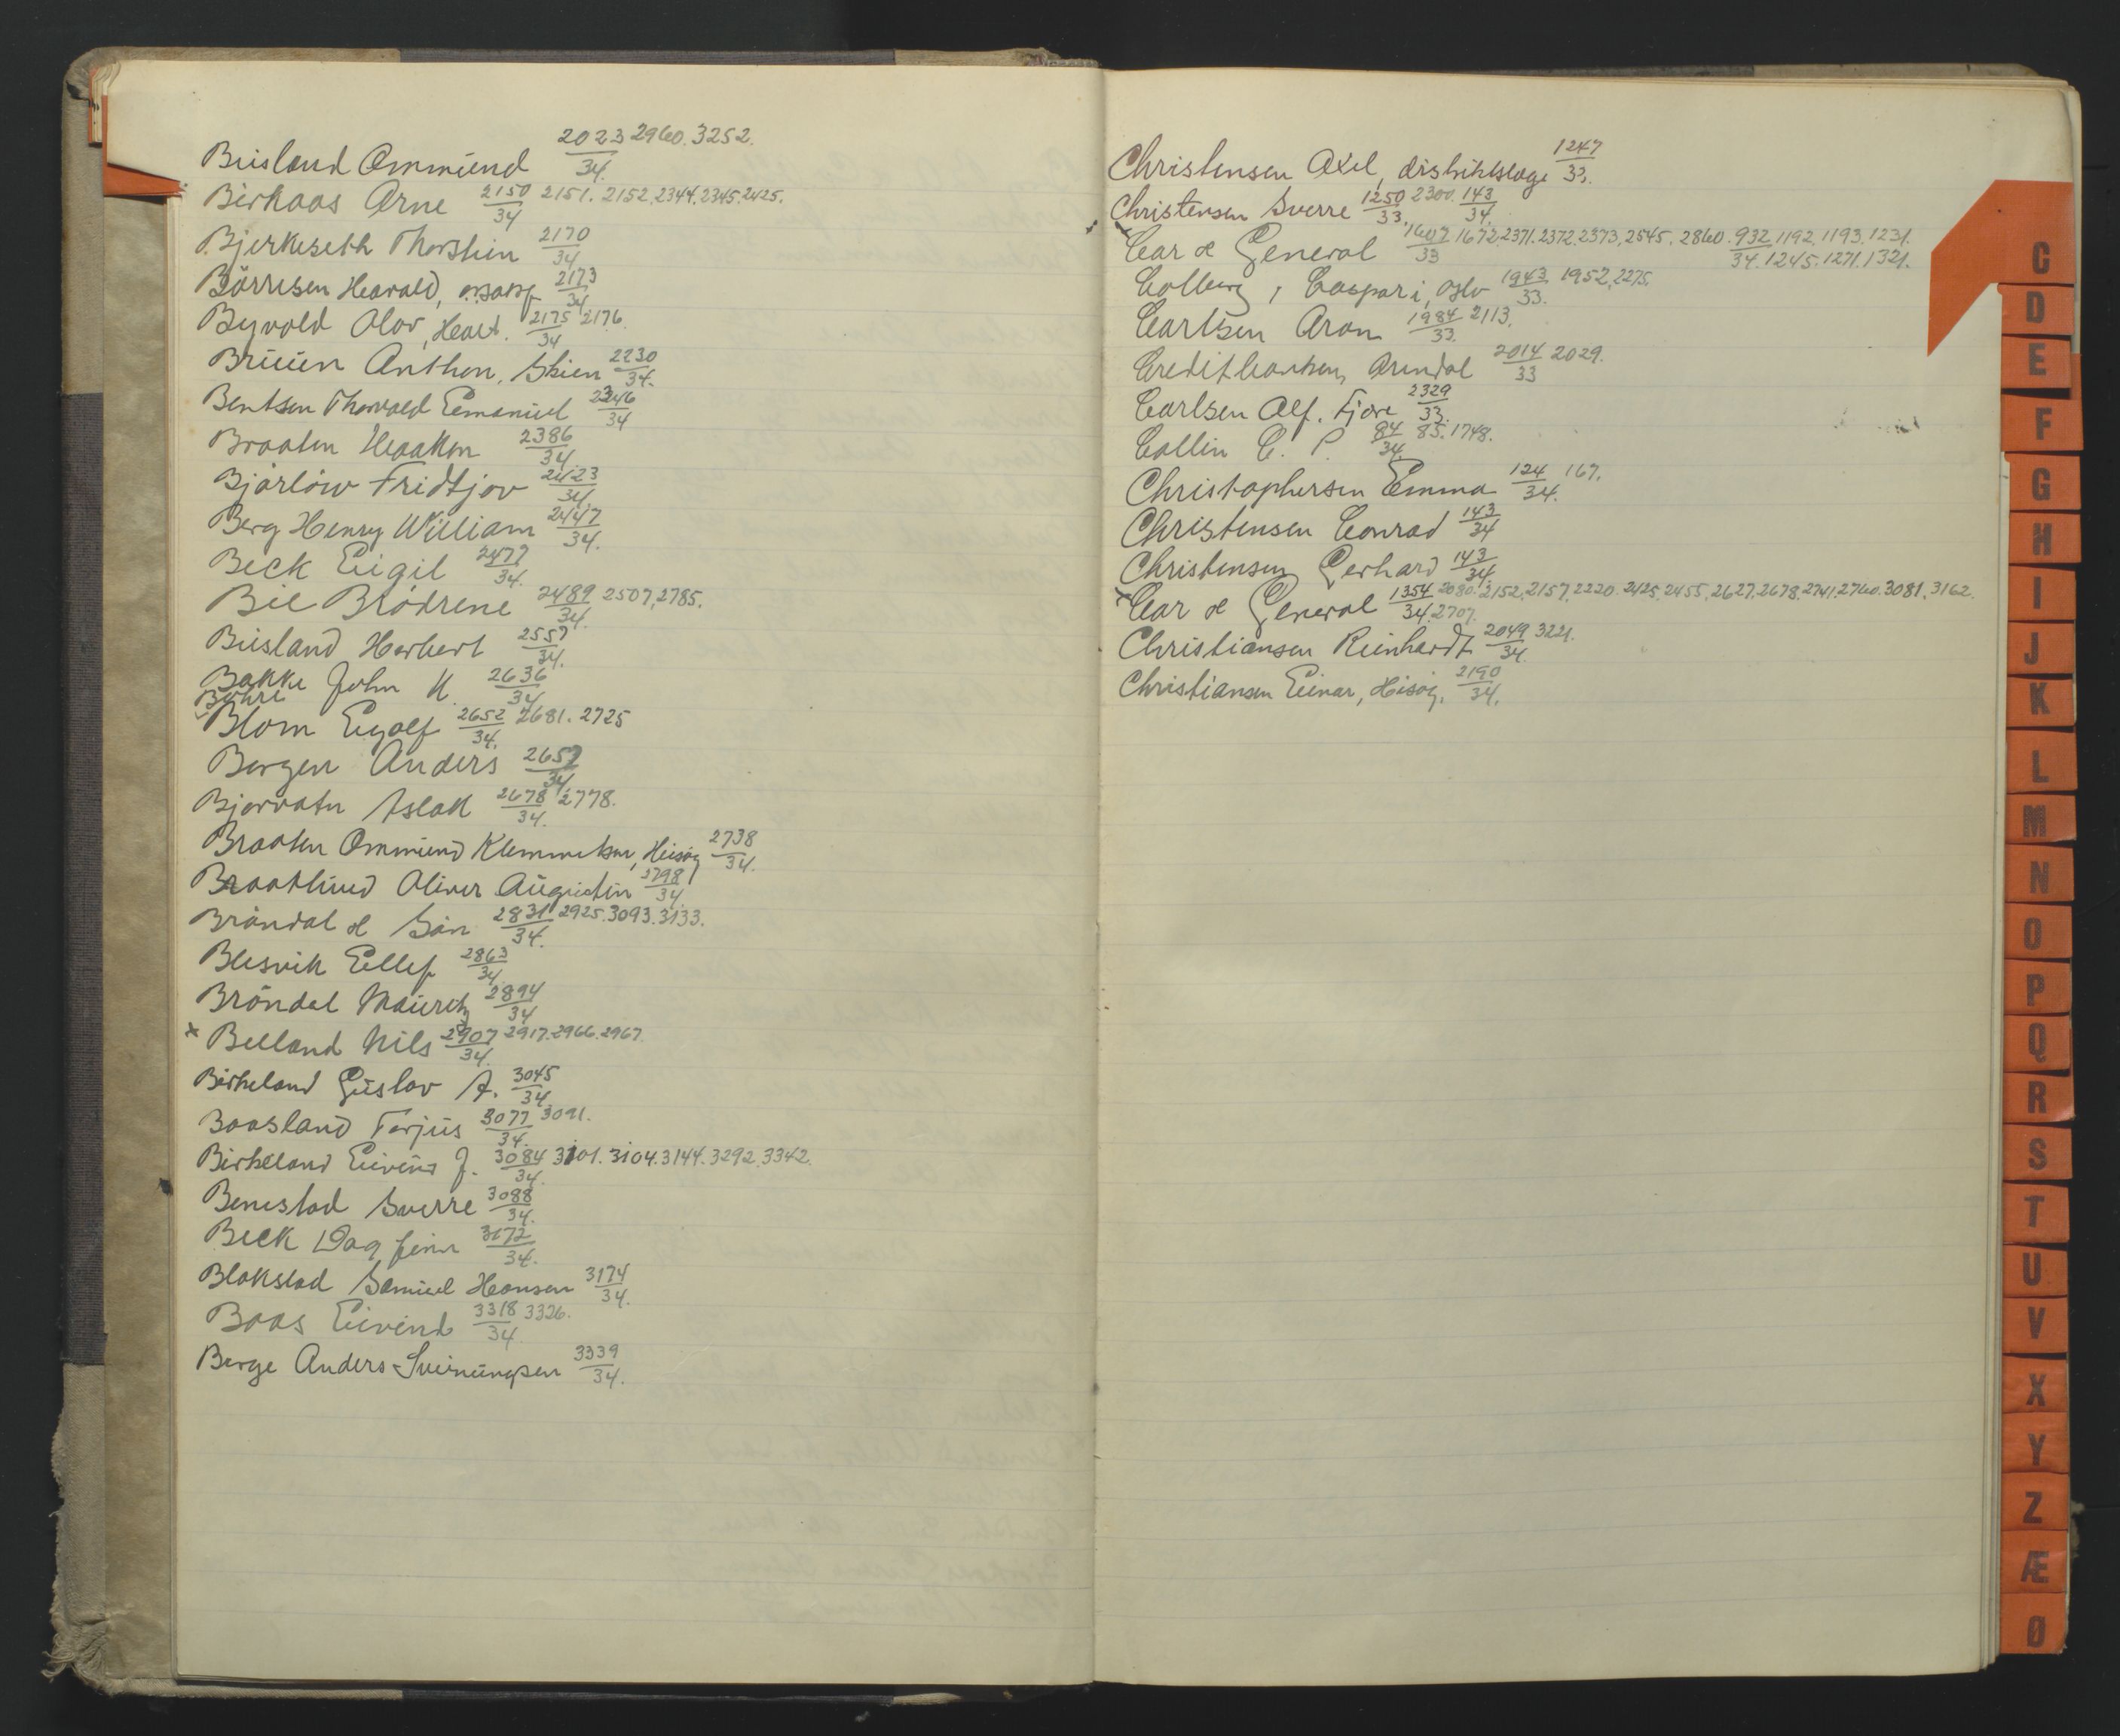 Buisland Ommund 2023/34. 2960. 3252.
Birkaas Arne 2150/34 2151. 2152. 2344. 2345. 2425.
Bjerkeseth Thorstein 2170/34
Börresen Harald, 2173/34
Byvold Olav, Heart. 2175/34 2176.
Bruun Anthon, Skien 2230/34.
Bentsen Thorvald Emanuel 2346/34
Braaten Haakon 2386/34.
Bjorlow Fridtjov 2423/34
Berg Henry William 2447/34.
Beck Eigil 2477/34.
Bie Brödrene 2489/34. 2507, 2785.
Buisland Herbert 2557/34.
Bakke John K. 2636/34
Bakke
Blom Egolf 2652/34. 2681. 2725
Borgen Anders 2657/34
Bjorvatn Aslak 2678/34. 2778.
Braaten Ommund Klemmetsen, Hisöy 2738/34.
Braatlund Oliver Augustin 2798/34
Bröndal & Sön 2831/34. 2925. 3093. 3133.
Blesvik Ellef 2863/34
Bröndal Mauritz 2894/34
x Belland Nils 2907/34. 2917. 2966. 2967.
Birkeland Gustav A. 3045/34
Baasland Tarjus 3077/34. 3091.
Birkeland Eivind J. 3084/34. 3101. 3104. 3144. 3292. 3342.
Benestad Sverre 3088/34.
Beck Dagfinn 3172/34.
Blakstad Samuel Hansen 3174/34.
Boas Eivind 3318/34. 3326.
Berge Anders Sveinungsen 3339/34.
Christensen Axel, distriktslæge 1247/33.
Christensen Sverre 1250/33. 2300. 143/34.
x Car & General 1607/33 1672, 2371. 2372, 2373, 2545. 2860. 932/34. 1192. 1193. 1231.
1245. 1271. 1321.
Collberg, Caspari, Oslo 1943/33. 1952, 2275.
Carlsen Aron 1984/33. 2113.
Creditbanken, Arendal 2014/33 2029.
Carlsen Alf. Fjære 2329/33.
Collin C. P. 84/34. 85. 1748.
Christophersen Emma 124/34. 167.
Christensen Conrad 143/34
Christensen Gerhard 143/34.
x Car & General 1354/34. 2080. 2152, 2157, 2220. 2425, 2455, 2627, 2678, 2741, 2760. 3081, 3162.
2707.
Christiansen Reinhardt 2049/34. 3221.
Christiansen Einar, Hisöy. 2190/34.
C
D
E
F
G
H
I
J
K
L
M
N
O
P
Q
R
S
T
U
V
X
Y
Z
Æ
Ø